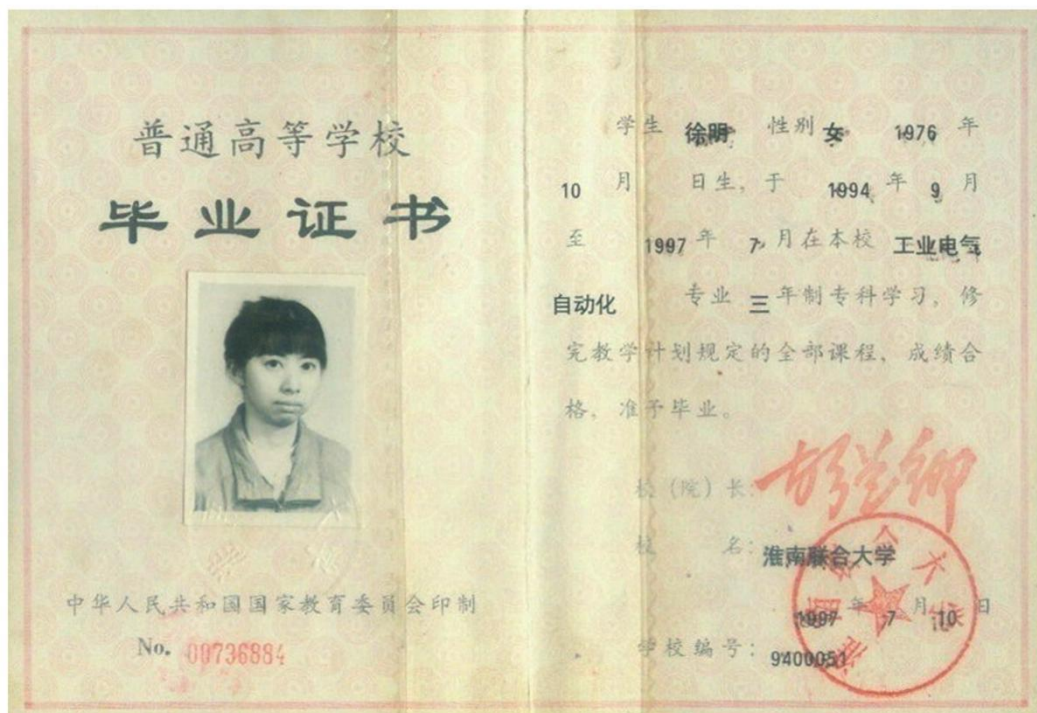 普通高等学校
毕业证书
中华人民共和国国家教育委员会印制
No. 00736884
学生 徐明 性别 女 1976 年
10 月 日生,于 1994 年 9 月
至 1997 年 7 月在本校 工业电气
自动化 专业 三 年制专科学习,修
完教学计划规定的全部课程,成绩合
格,准予毕业。
校(院)长:
校 名: 淮南联合大学
1997 年 7 月 10 日
学校编号: 9400051
淮南联合大学